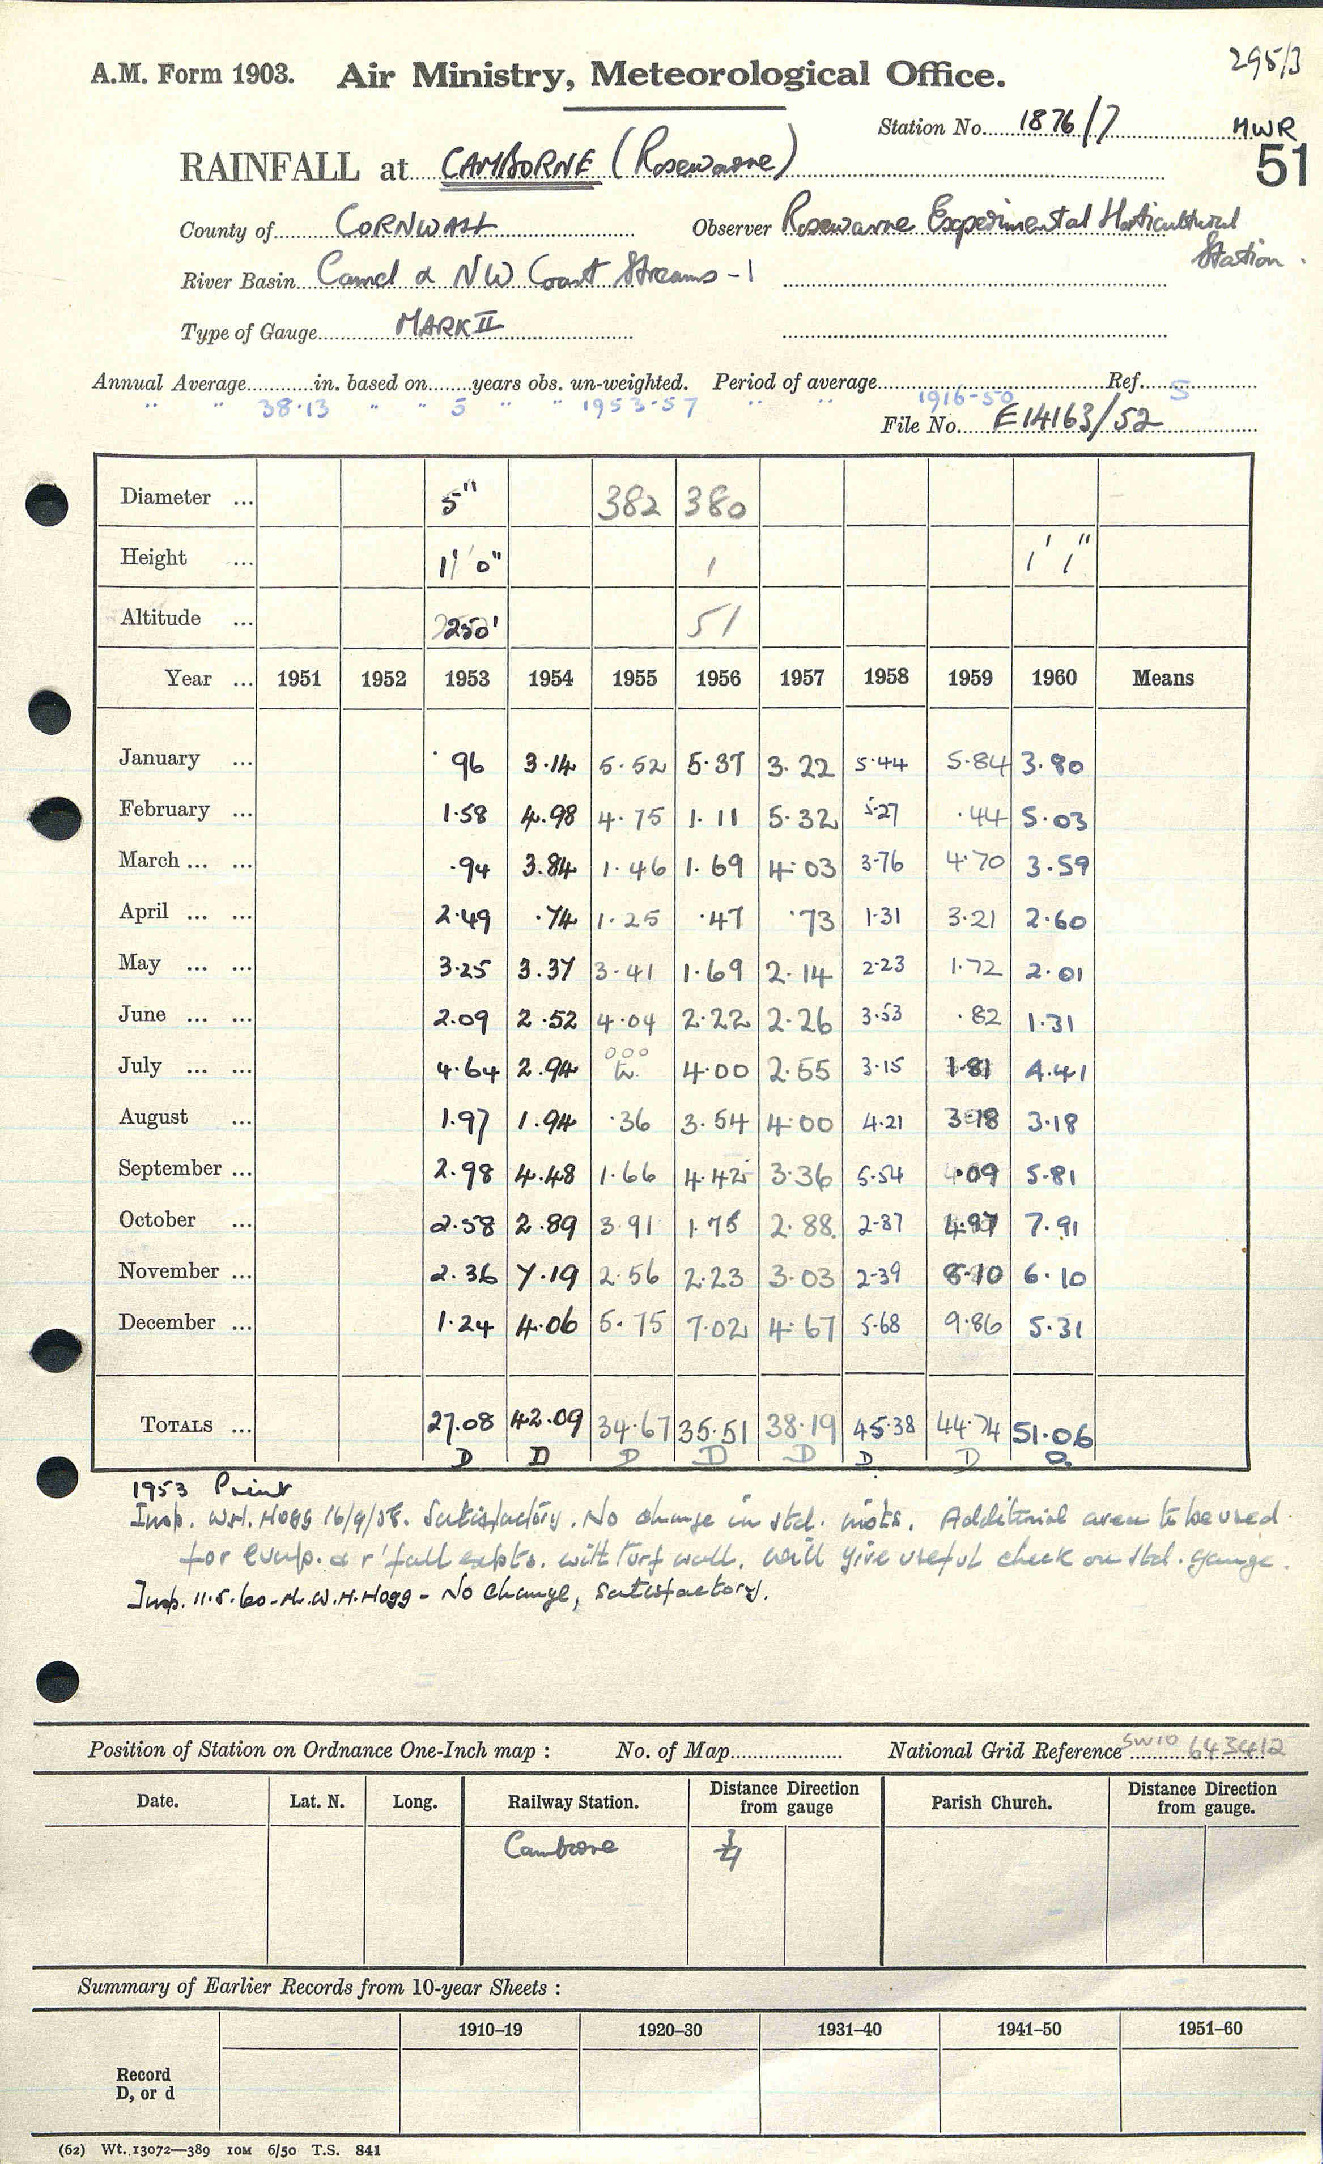 295/3
A.M. Form 1903. Air Ministry, Meteorological Office.
Station No. 1876/7 HWR
51
RAINFALL at CAMBORNE (Rosewarne)
County of CORNWALL Observer Rosewarne Experimental Horticultural Station.
River Basin Camel & NW Coast Streams - 1
Type of Gauge MARK II
Annual Average in. based on years obs. un-weighted. Period of average Ref.
" " 38.13 " " 5 " " 1953-57 " " 1916-50 5
File No. E14163/52
Diameter ... 5" 382 380
Height ... 1' 0" 1 1' 1"
Altitude ... 250' 51
Year ... 1951 1952 1953 1954 1955 1956 1957 1958 1959 1960 Means
January ... .96 3.14 5.52 5.37 3.22 5.44 5.84 3.80
February ... 1.58 4.98 4.75 1.11 5.32 5.27 .44 5.03
March ... ... .94 3.84 1.46 1.69 4.03 3.76 4.70 3.59
April ... ... 2.49 .74 1.25 .47 .73 1.31 3.21 2.60
May ... ... 3.25 3.37 3.41 1.69 2.14 2.23 1.72 2.01
June ... ... 2.09 2.52 4.04 2.22 2.26 3.53 .82 1.31
July ... ... 4.64 2.94 000 tr. 4.00 2.55 3.15 1.81 4.41
August ... 1.97 1.94 .36 3.54 4.00 4.21 3.18 3.18
September ... 2.98 4.48 1.66 4.42 3.36 5.54 .09 5.81
October ... 2.58 2.89 3.91 1.75 2.88 2.87 4.97 7.91
November ... 2.36 7.19 2.56 2.23 3.03 2.39 8.10 6.10
December ... 1.24 4.06 5.75 7.02 4.67 5.68 9.86 5.31
TOTALS ... 27.08 42.09 34.67 35.51 38.19 45.38 44.74 51.06
D D D D D D D D
1953 Print
Insp. W.H. Hogg 16/9/58. Satisfactory. No change in std. insts. Additional area to be used
for evap. & r'fall expts. with turf wall. will give useful check on std. gauge.
Insp. 11.5.60 - Mr. W.H. Hogg - No change, satisfactory.
Position of Station on Ordnance One-Inch map : No. of Map National Grid Reference SW10 643412
Date. Lat. N. Long. Railway Station. Distance Direction from gauge Parish Church. Distance Direction from gauge.
Camborne 3/4
Summary of Earlier Records from 10-year Sheets :
1910–19 1920–30 1931–40 1941–50 1951–60
Record
D, or d
(62) Wt. 13072—389 10M 6/50 T.S. 841